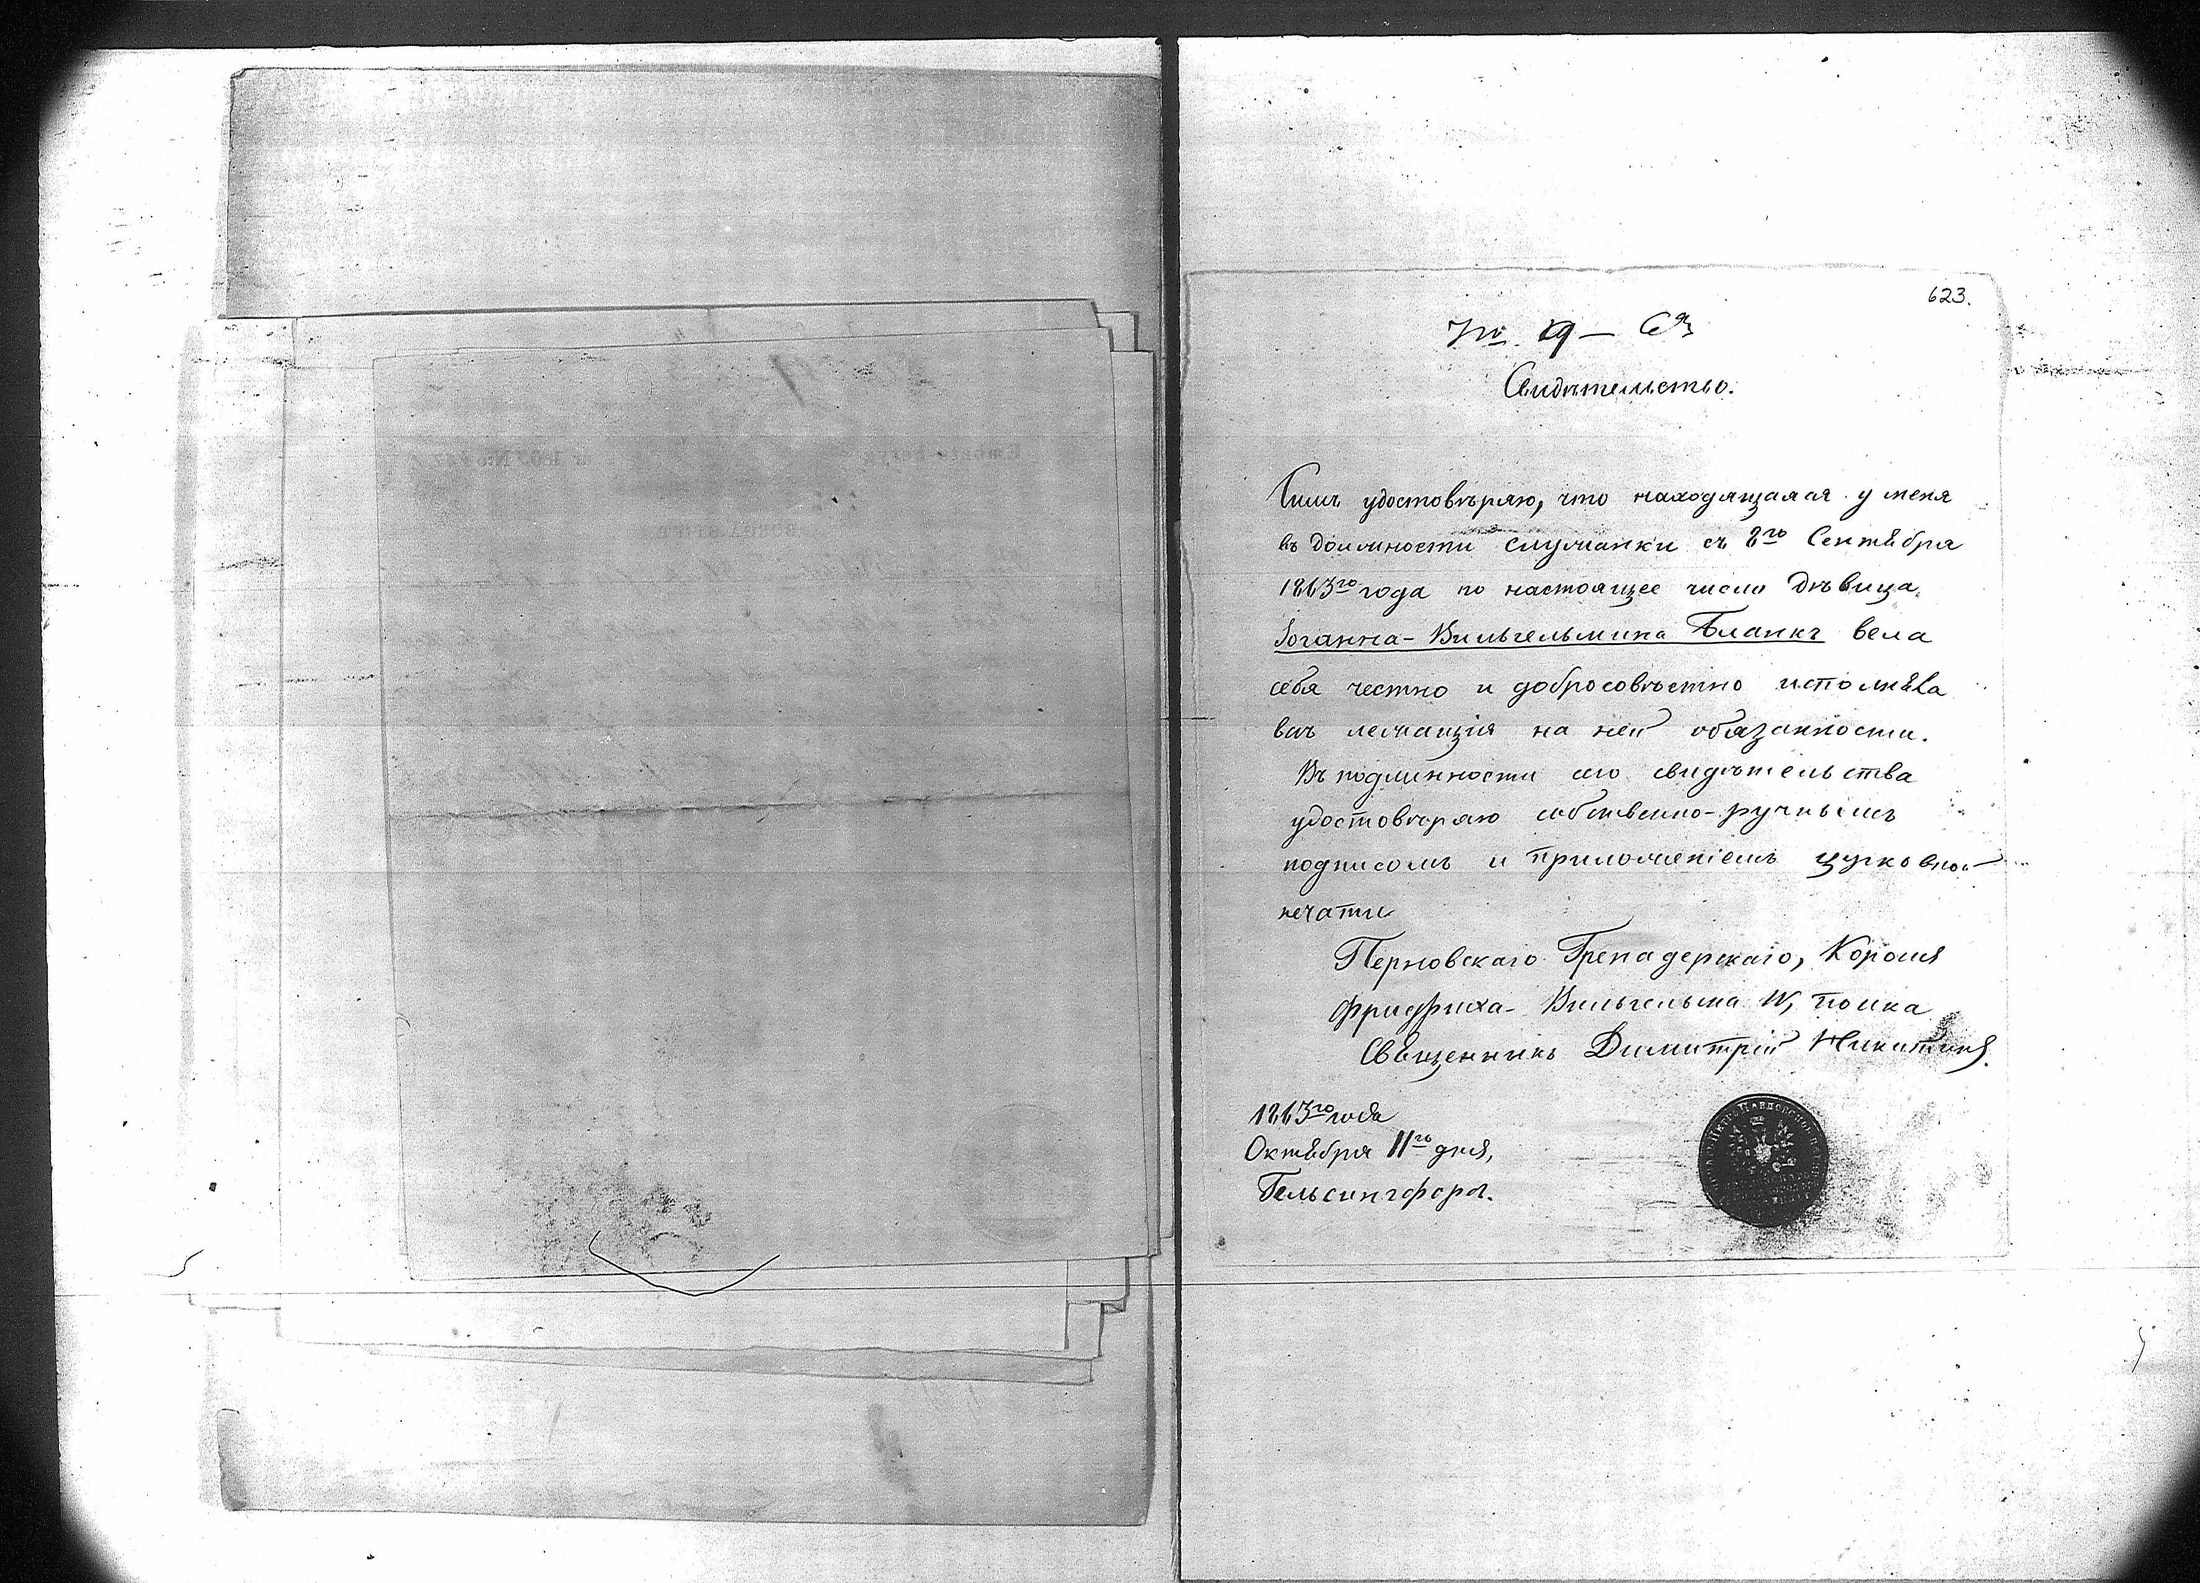 623.
№ 9 – 63
Свидѣтельство.
Симъ удостовѣряю, что находящаяся у меня
въ должности служанки съ 8го Сентября
1863го года по настоящее число дѣвица
Іоганна-Вильгельмина Бланкъ вела
себя честно и добросовѣстно исполняла
всѣ лежащія на ней обязанности.
Въ подлинности сего свидѣтельства
удостовѣряю собственно-ручнымъ
подписомъ и приложеніемъ церковной
печати
Перновскаго Гренадерскаго, Короля
Фридриха-Вильгельма IV, полка
Священникъ Димитрій Никитинъ.
1863го года
Октября 11го дня,
Гельсингфорсъ.